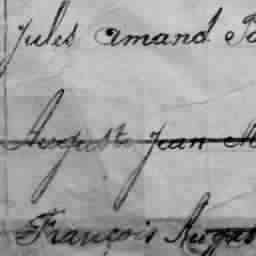 Jules Amand
August Jean M
François Augus